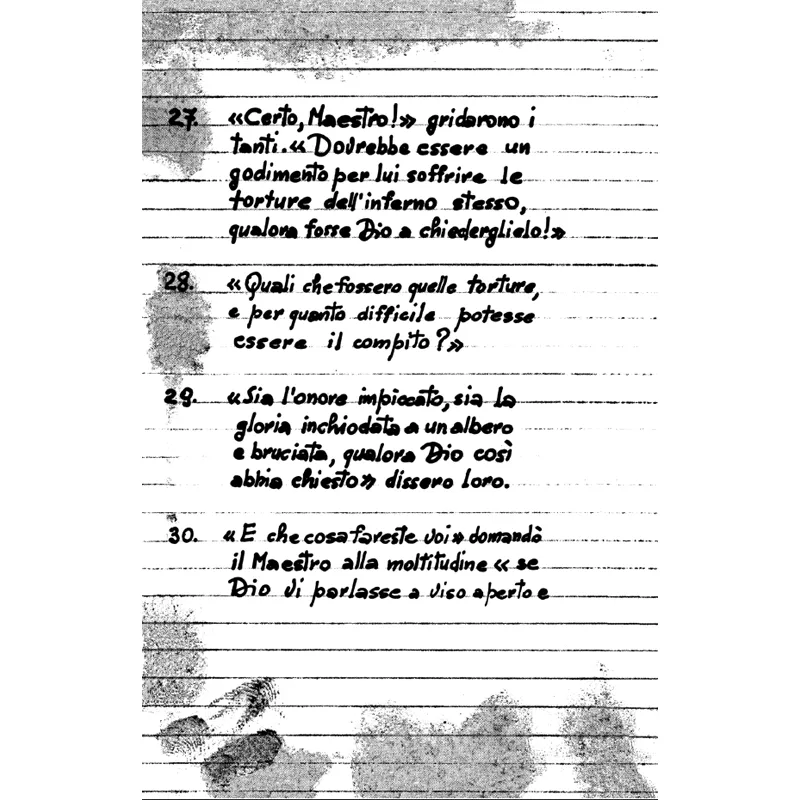 27. «Certo, Maestro!» gridarono i
tanti. «Dovrebbe essere un
godimento per lui soffrire le
torture dell'inferno stesso,
qualora fosse Dio a chiederglielo!»
28. «Quali che fossero quelle torture,
e per quanto difficile potesse
essere il compito?»
29. «Sia l'onore impiccato, sia la
gloria inchiodata a un albero
e bruciata, qualora Dio così
abbia chiesto» dissero loro.
30. «E che cosa fareste voi» domandò
il Maestro alla moltitudine «se
Dio vi parlasse a viso aperto e